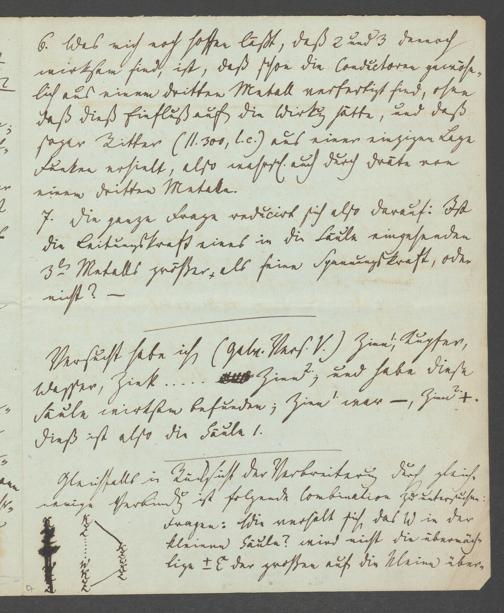 6. Was mich noch hoffen läßt, daß 2 und 3 dennoch
wirksam sind, ist, daß schon die Conductoren gewöhn-
lich aus einem dritten Metall verfertigt sind, ohne
daß dieß Einfluß auf die Wirkg hätte, und daß
sogar Ritter (II. 300, l.c.) aus einer einzigen Lage
Funken erhielt, also auch durch Dräte von
einem dritten Metalle.
7. Die ganze Frage reducirt sich also darauf: Ist
die Leitungskraft eines in die Säule eingehenden
3ten Metalls größer, als seine Spannungskraft, oder
nicht? —
Versucht habe ich (Galv. Vers. V.) Zinn1, Kupfer,
Wasser, Zink ..... Zinn2; und habe diese
Säule wirksam befunden; Zinn1 war —, Zinn2 +.
Dieß ist also die Säule 1.
Gleichfalls in Rücksicht der Verbreiterung durch gleich-
namige Verbindg ist folgende Combination zu untersuchen:
Fragen: Wie verhält sich das W in der
kleinern Säule? wird nicht die überwäch-
lige ± E der großen auf die kleine über-